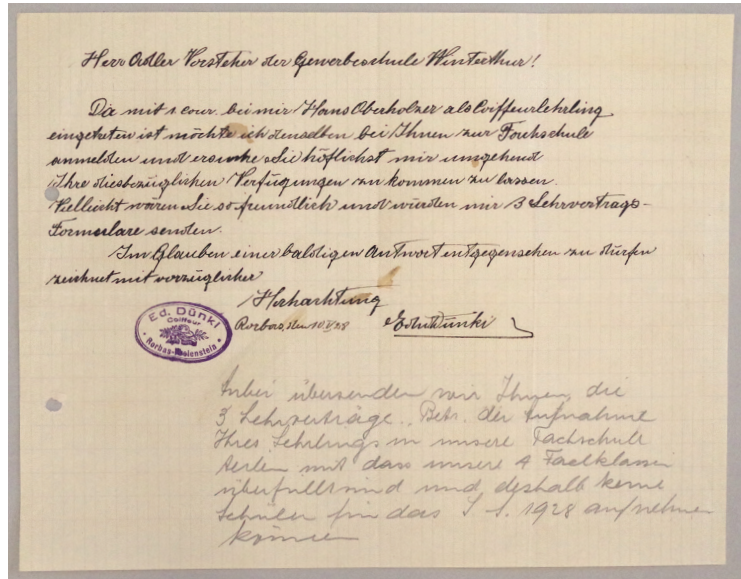 Herr Adler Vorsteher der Gewerbeschule Winterthur!
Da mit 1. cour. bei mir Hans Oberholzer als Coiffeurlehrling
eingetreten ist möchte ich denselben bei Ihnen zur Fachschule
anmelden und ersuche Sie höflichst mir umgehend
Ihre diesbezüglichen Verfügungen zu kommen zu lassen.
Vielleicht wären Sie so freundlich und würden mir 3 Lehrvertrags-
Formulare senden.
Im Glauben einer baldigen Antwort entgegensehen zu dürfen
zeichnet mit vorzüglicher
Hochachtung
Rorbas, den 10. V 28
Dünki
Ed. Dünki
Coiffeur
Rorbas-Freienstein
Anbei übersenden wir Ihnen, die
3 Lehrverträge. Betr. der Aufnahme
Ihres Lehrlings in unsere Fachschule
teilen mit dass unsere 4 Fachklassen
überfüllt sind und deshalb keine
Schüler für das S. S. 1928 aufnehmen
können